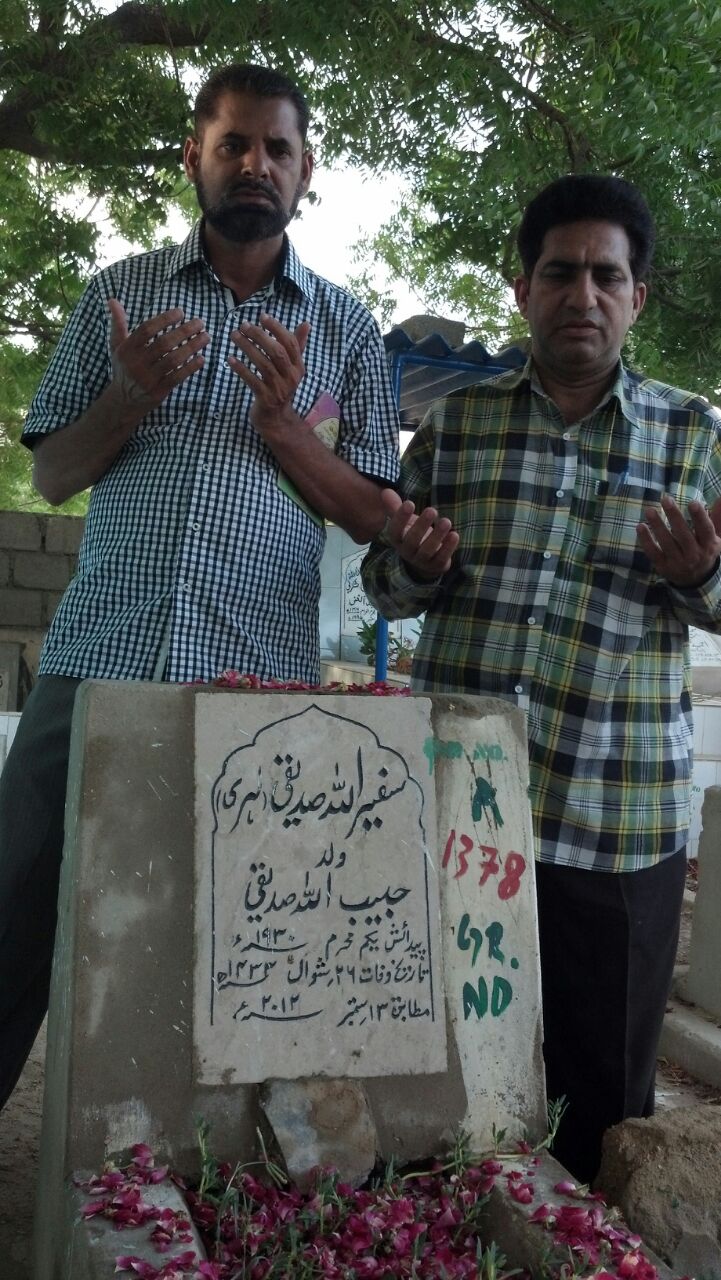 سفیر اللہ صدیقی (لہری)
ولد
حبیب اللہ صدیقی
پیدائش یکم محرم ۱۹۳۰ء
تاریخ وفات ۲۶ شوال ۱۴۳۳ھ
مطابق ۱۳ ستمبر ۲۰۱۲ء
NO.
A
1378
GR.
ND